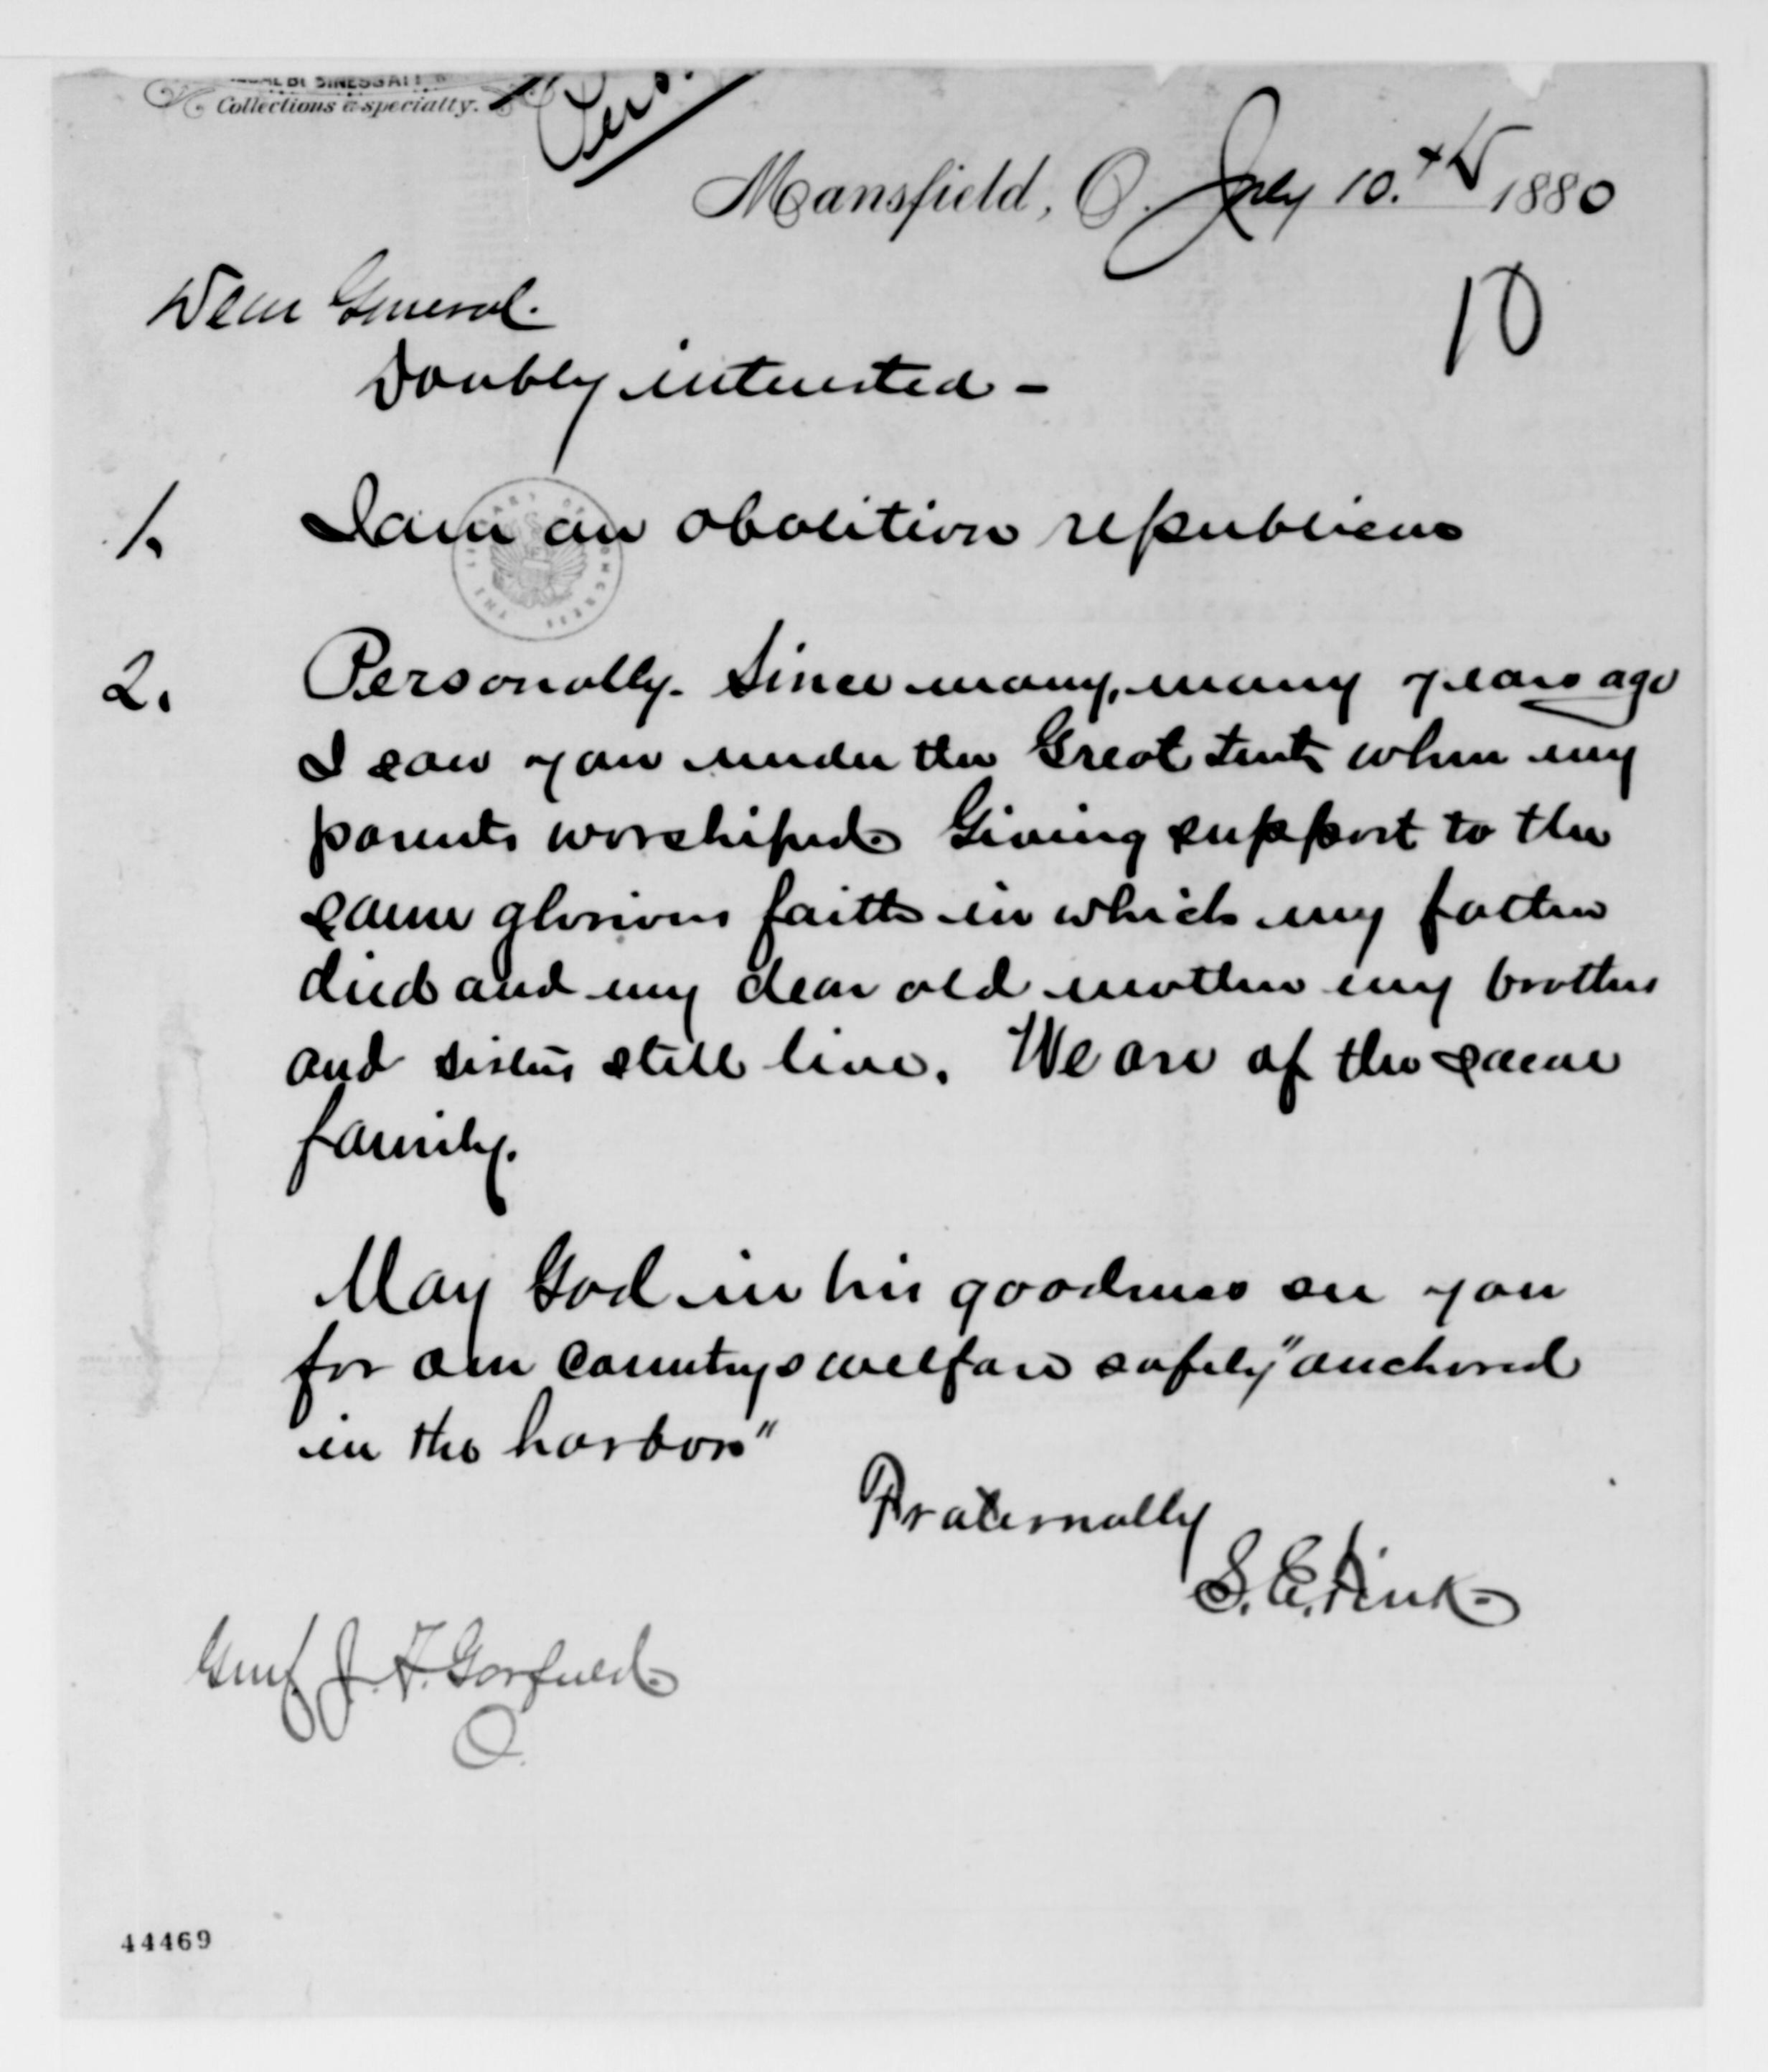 Collections a specialty.
Pers.
Mansfield, O. July 10.th 1880
10
Dear General.
Doubly interested -
1. I am an abolition republican
2. Personally. Since many, many years ago
I saw you under the Great tent when my
parents worshiped Giving support to the
same glorious faith in which my father
died and my dear old mother my brothers
and sisters still live. We are of the same
family.
May God in his goodness see you
for our countrys welfare safely "anchored
in the harbor"
Fraternally
S. E. Fink
Genl. J. F. Garfield
O.
THE LIBRARY OF CONGRESS
44469